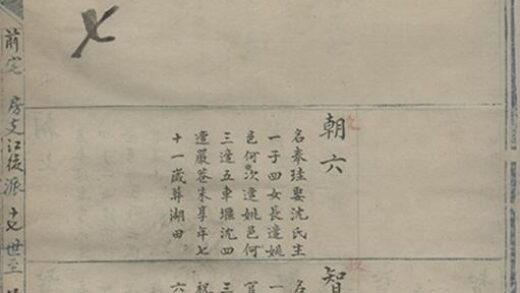 朝六
名泰珪娶沈氏生
一子四女長適姚
邑何次適姚邑何
三適五車堰沈四
適嚴巷朱享年七
十一歲葬湖田
智
名
一
三
六
前宅 房支江後派 十七世至